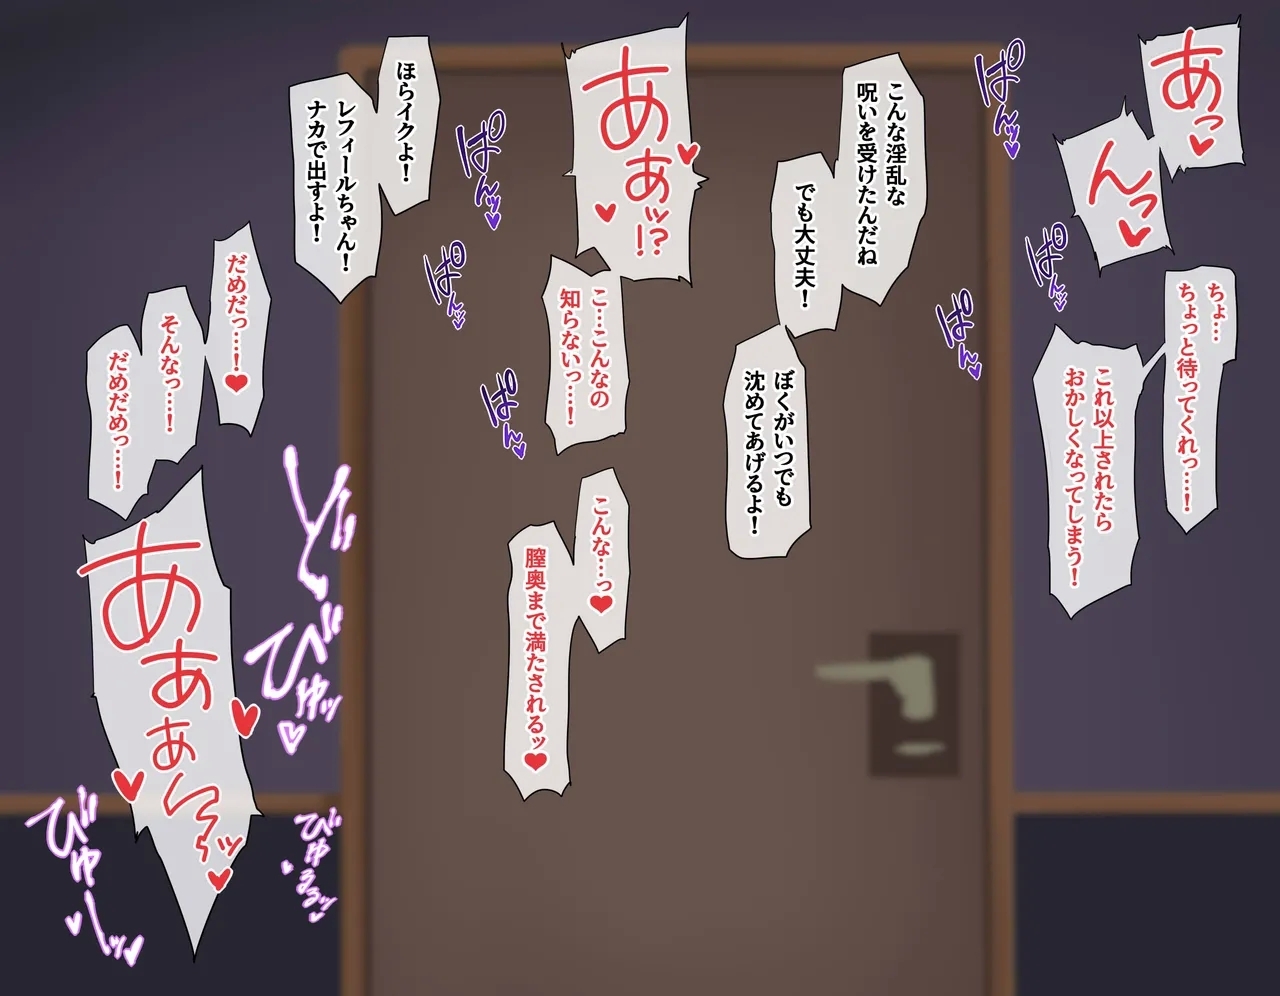 あっ♥
んっ♥
ちょ…
ちょっと待ってくれっ…！
これ以上されたら
おかしくなってしまう！
ぱんッ♥
ぱんっ♥
ぱんっ♥
こんな淫乱な
呪いを受けたんだね
でも大丈夫！
ぼくがいつでも
沈めてあげるよ！
あぁッ!?♥♥
こ…こんなの
知らないっ…！
こんな…っ♥
膣奥まで満たされるッ♥
ぱんッ♥
ぱんっ♥
ぱんっ♥
ほらイクよ！
レフィールちゃん！
ナカで出すよ！
だめだっ…！♥
そんなっ…！
だめだめっ…！
あぁぁん〜ッ♥♥♥
どッ
びゅッ♥
びゅるッ♥
びゅーッ♥